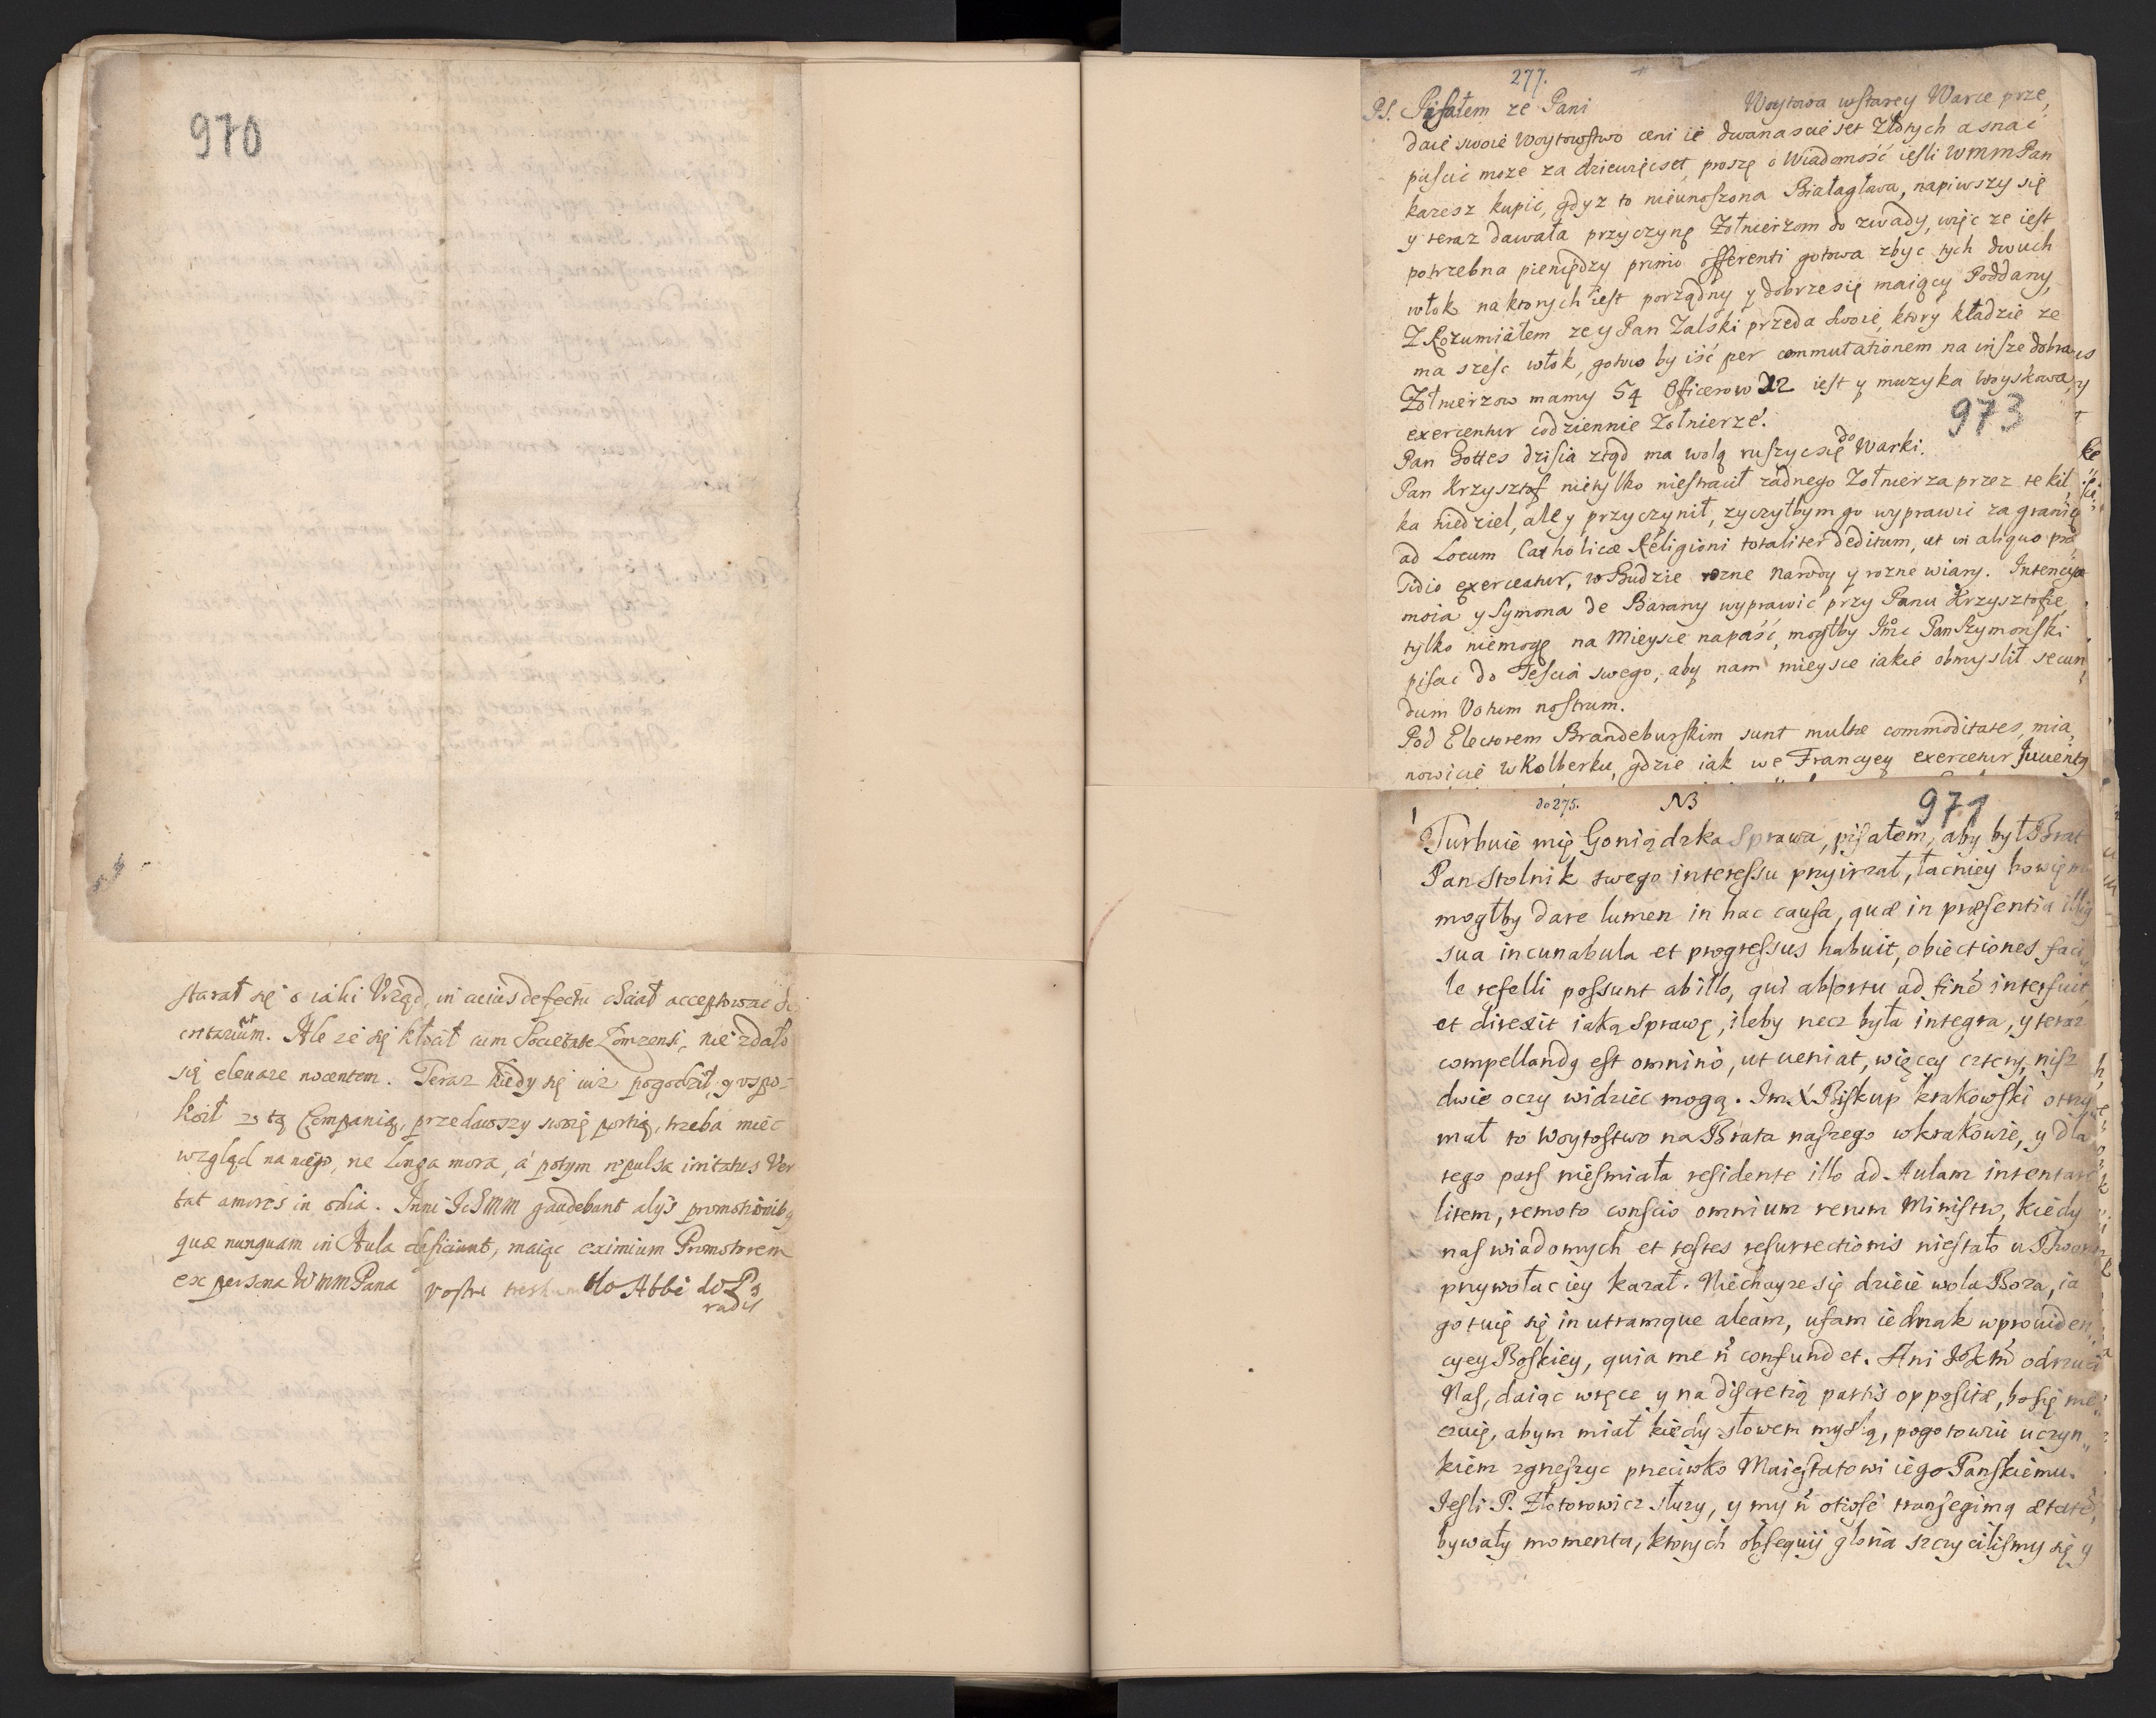 970
starał się o iaki Urząd, in cuius defectu chciał acceptować
Ale ze się kłócił cum Societate Lomzensi, nie zdało
się eleuare nocentem. Teraz kiedy się iuz pogodził, y uspo-
koił z tą Companią, przedawszy swoię portią, trzeba mieć
wzgląd na niego, ne longa mora, a potym repulsa irritatus Ver
tat amores in odia. Inni gaudebant alijs promotionibq
quæ nunquam in Aula deficiunt, maiąc eximium Promotorem
ex persona WMMPana
277.
PS. Pisałem ze Pani Woytowa wstarey Warce prze,
daie swoie Woytowstwo ceni ie dwanascie set Złotych a snać
puscić moze za dziewięcset, proszę o Wiadomość iesli WMMPan
kazesz kupić, gdyz to nieunoszona Białagława, napiwszy się
y teraz dawała przyczynę Zołnierzom do zwady, więc ze iest
potrzebna pieniędzy primo offerenti gotowa zbyc tych dwuch
włok na ktorych iest porządny y dobrze się maiący Poddany,
ZRozumiałem ze y Pan Zalski przeda swoie, ktory kładzie ze
ma szesc włok, gotow by iść per commutationem na insze dobra
Zołnierzow mamy 54 Officerow 12 iest y muzyka Woyskowa,
exercentur codziennie Zołnierze.
973
Pan Gottes dzisia ztąd ma wolą ruszyc się do Warki.
Pan Krzysztof nietylko niestracił zadnego Zołnierza przez te kil,
ka niedziel, ale y przyczynił, zyczyłbym go wyprawić za granicę
ad Locum Catholicæ Religioni totaliter deditum, ut in aliquo præ,
sidio exerceatur, w Budzie rozne Narody y rozne wiary. Intencya
moia y Symona de Barany wyprawić przy Panu Krzysztofie,
tylko niemogę na Mieysce napaść, mogłby Imc Pan Szymonski
pisac do Teścia swego, aby nam mieysce iakie obmyslił secun,
dum Votum nostrum.
Pod Electorem Brandeburskim sunt multæ commoditates, mia,
nowicie w Kolberku, gdzie iak we Francyey exercetur Juuentq
do 275. NB 971
Turbuie mię Goniądzka Sprawa, pisałem, aby był Brat
Pan Stolnik swego interessu przyirzał, łacniey bowiem
mogłby dare lumen in hac causa, quæ in præsentia illiq
sua incunabula et progressus habuit, obiectiones faci,
le refelli possunt ab illo, qui ab ortu ad finē interfuit,
et direxit iaką Sprawę, ileby recz była integra, y teraz
compellandq est omninò, ut ueniat, więcey cztery, nisz
dwie oczy widziec mogą. ImX Biskup krakowski otrzy
mał to Woytostwo na Brata naszego wkrakowie, y dla
tego pars nieśmiała residente illo ad Aulam intentare
litem, remoto conscio omnium rerum Ministro, kiedy
nas wiadomych et testes resurrectionis niestało u Dworu
przywołac iey kazał. Niechayze się dzieie wola Boza, ia
gotuię się in utramque aleam, ufam iednak wprouiden,
cyey Boskiey, quia me ñ confundet. Ani odrzuci
Nas, daiąc wręce y na discretią partis oppositæ, bo się nie
czuię, abym miał kiedy słowem myslą, pogotowiu uczyn,,
kiem zgrzeszyc przeciwko Maiestatowi iego Panskiemu.
Jesli P. Złotorowicz słuzy, y my ñ otiosè transegimq ætatē,
bywały momenta, ktorych obsequij gloria szczycilismy się y